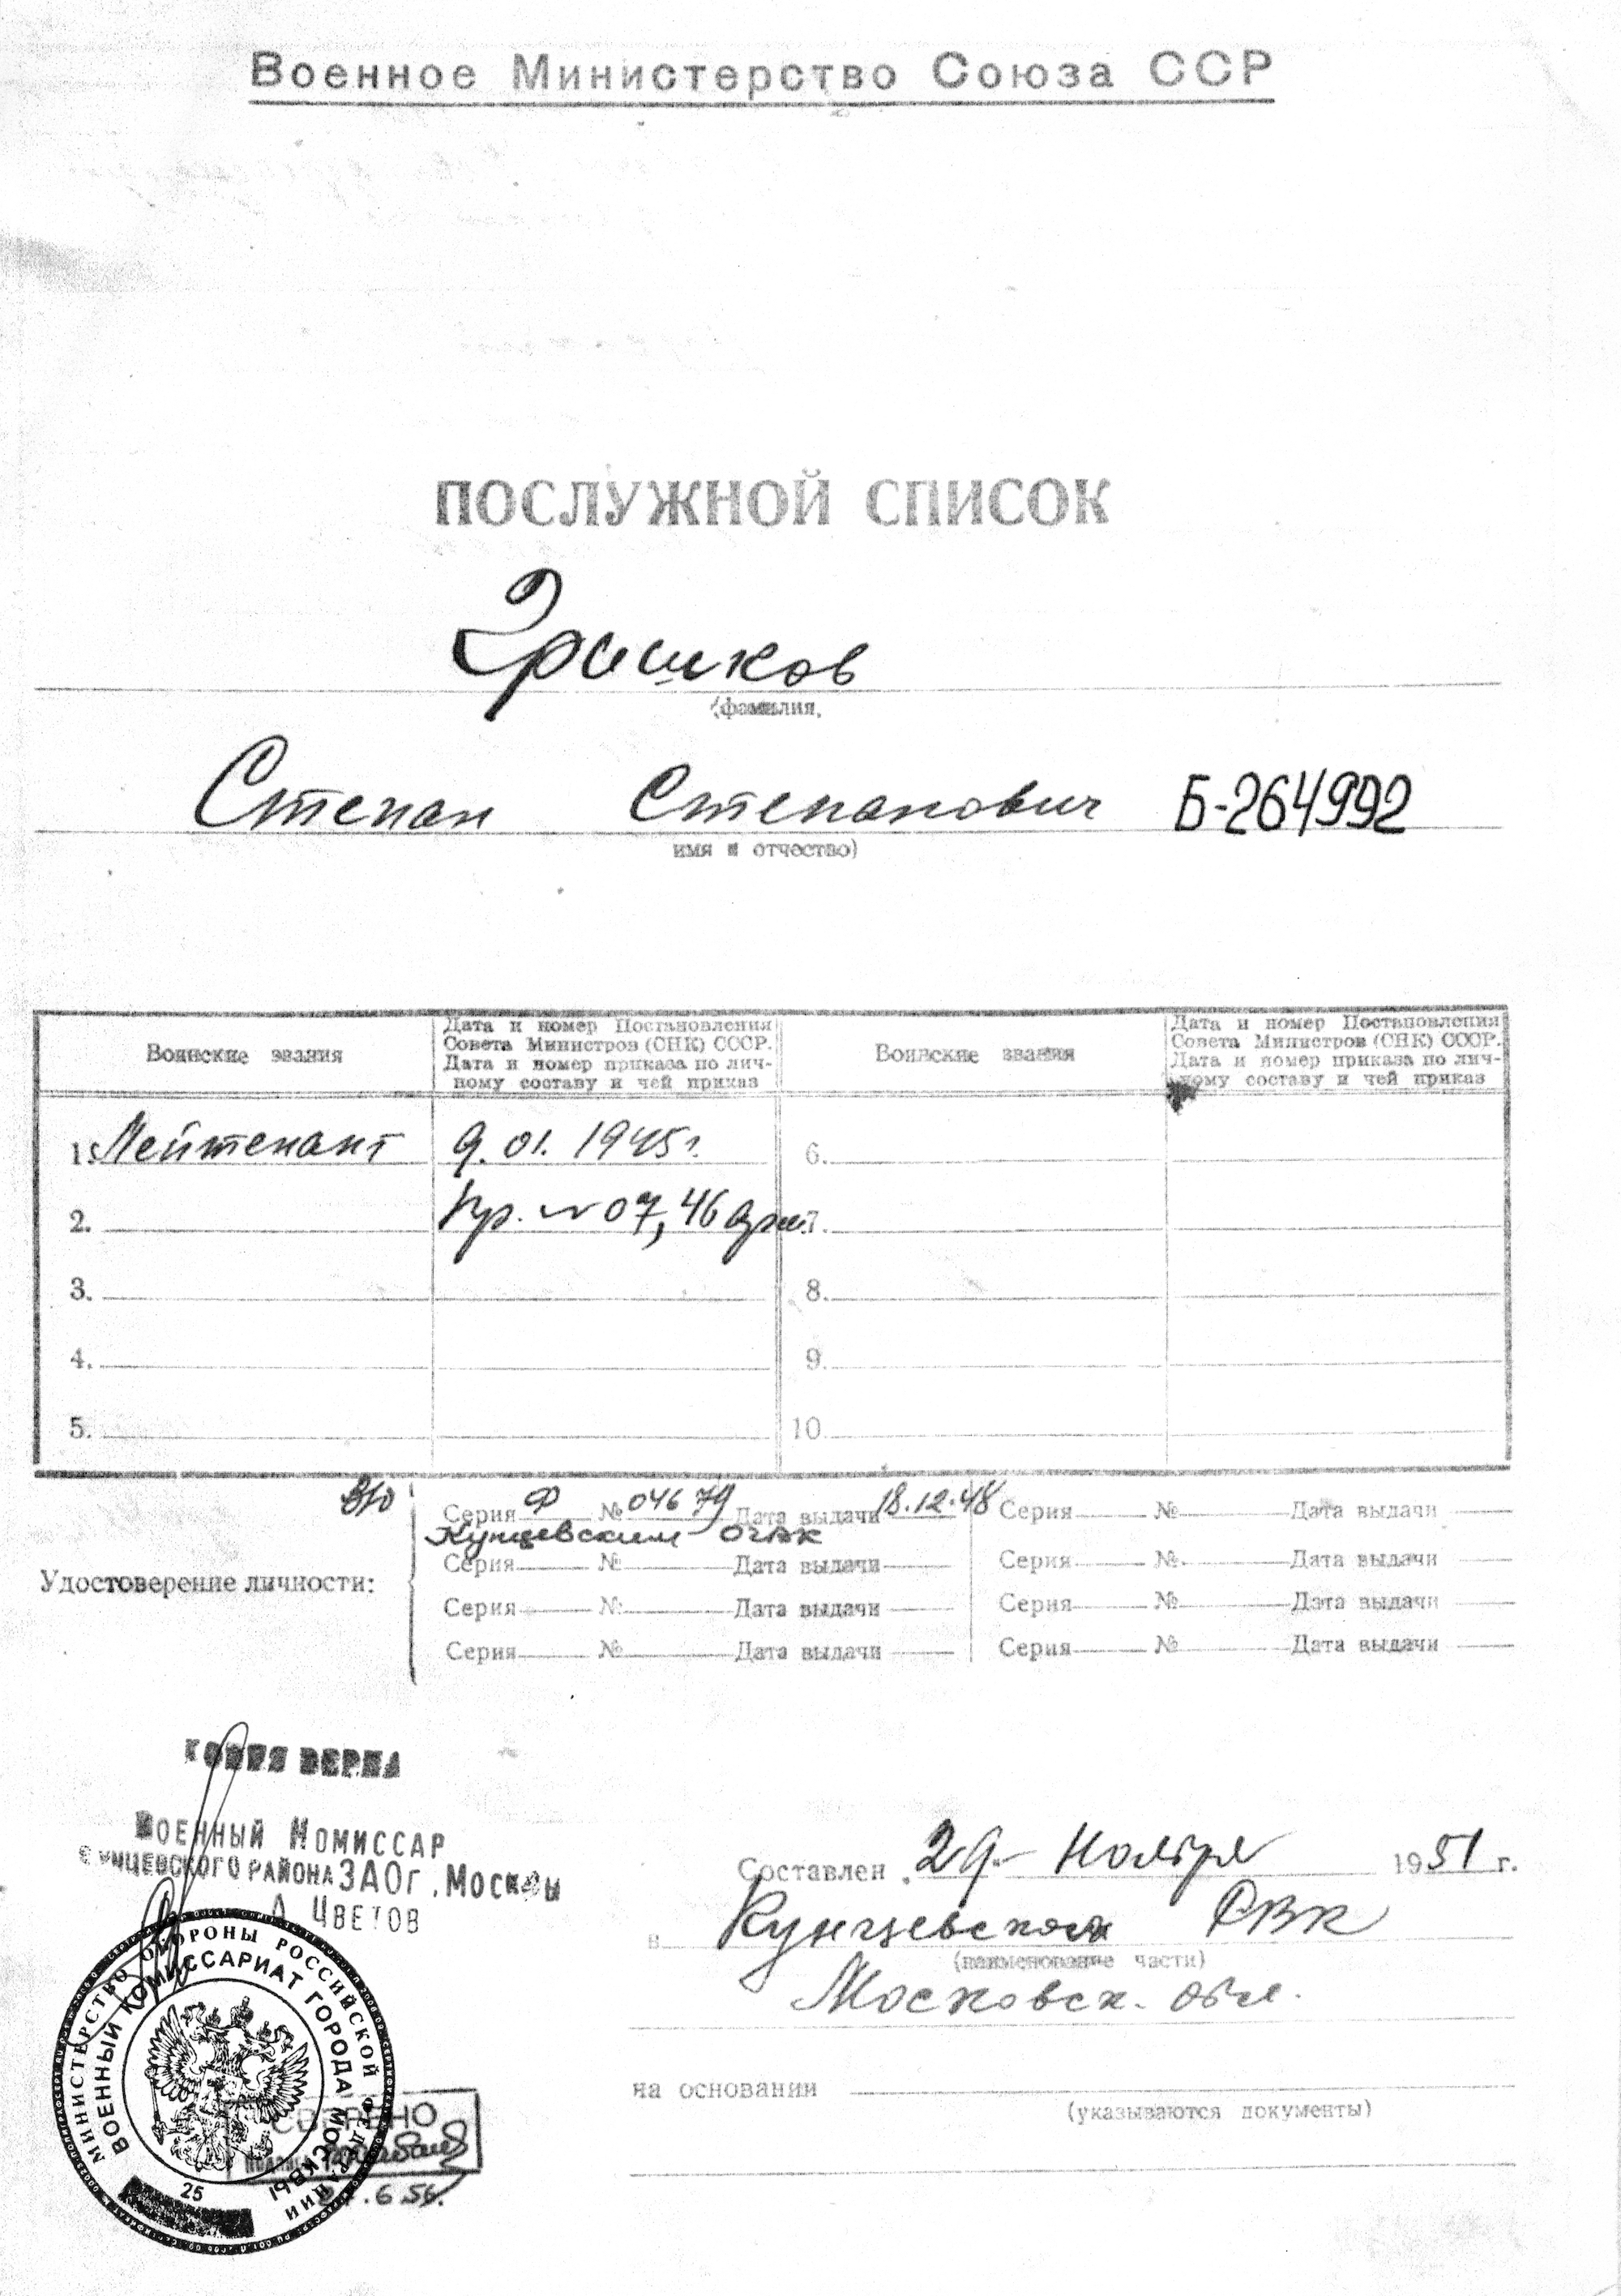 Военное Министерство Союза ССР
ПОСЛУЖНОЙ СПИСОК
Гришков
(фамилия,
Степан Степанович Б-264992
имя и отчество)
Воинские звания
Дата и номер Постановления
Совета Министров (СНК) СССР.
Дата и номер приказа по лич-
ному составу и чей приказ
Воинские звания
Дата и номер Постановления
Совета Министров (СНК) СССР.
Дата и номер приказа по лич-
ному составу и чей приказ
1. Лейтенант 9.01.1945г. 6.
2. Пр. № 07, 46 арм. 7.
3. 8.
4. 9.
5. 10.
Серия Ф № 04679 Дата выдачи 18.12.48 Серия № Дата выдачи
Кунцевским
Серия № Дата выдачи Серия № Дата выдачи
Удостоверение личности:
Серия № Дата выдачи Серия № Дата выдачи
Серия № Дата выдачи Серия № Дата выдачи
КОПИЯ ВЕРНА
ВОЕННЫЙ КОМИССАР
КУНЦЕВСКОГО РАЙОНА ЗАО г. МОСКВЫ
А ЦВЕТОВ
Составлен 29 Ноября 1951 г.
в Кунцевском РВК
(наименование части)
Московск. обл.
на основании
(указываются документы)
МИНИСТЕРСТВО ОБОРОНЫ РОССИЙСКОЙ ФЕДЕРАЦИИ
ВОЕННЫЙ КОМИССАРИАТ ГОРОДА МОСКВЫ
25
СВЕРЕНО